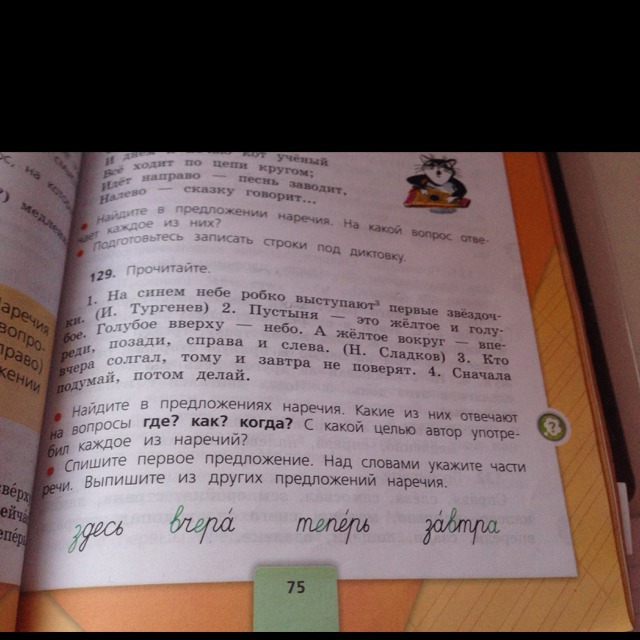 И днём и ночью кот учёный
Всё ходит по цепи кругом;
Идёт направо — песнь заводит,
Налево — сказку говорит...
• Найдите в предложении наречия. На какой вопрос отве-
чает каждое из них?
• Подготовьтесь записать строки под диктовку.
129. Прочитайте.
1. На синем небе робко выступают³ первые звёздоч-
ки. (И. Тургенев) 2. Пустыня — это жёлтое и голу-
бое. Голубое вверху — небо. А жёлтое вокруг — впе-
реди, позади, справа и слева. (Н. Сладков) 3. Кто
вчера солгал, тому и завтра не поверят. 4. Сначала
подумай, потом делай.
• Найдите в предложениях наречия. Какие из них отвечают
на вопросы где? как? когда? С какой целью автор употре-
бил каждое из наречий?
• Спишите первое предложение. Над словами укажите части
речи. Выпишите из других предложений наречия.
здесь вчера́ тепе́рь за́втра
75